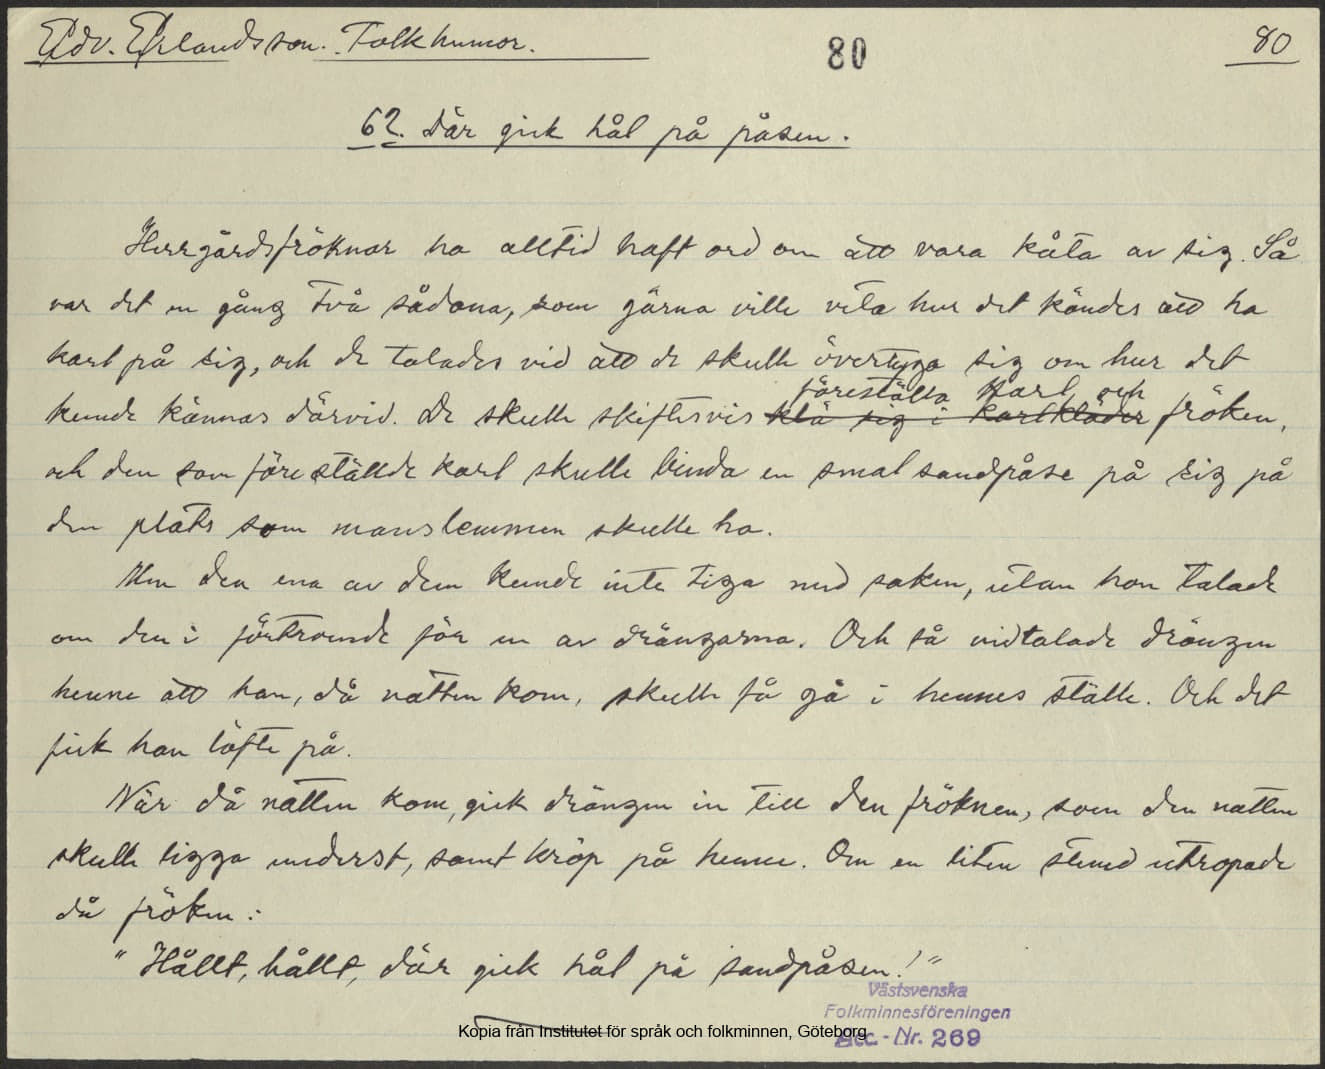 Edv. Erlandsson. Folkhumor.
80
80
62. Där gick hål på påsen.
Herrgårdsfröknar ha alltid haft ord om att vara kåta av sig. Så
var det en gång två sådana, som gärna ville veta hur det kändes att ha
karl på sig, och de talades vid att de skulle övertyga sig om hur det
föreställa karl och
kunde kännas därvid. De skulle skiftesvis klä sig i karlkläder fröken,
och den som föreställde karl skulle binda en smal sandpåse på sig på
den plats som manslemmen skulle ha.
Men den ena av dem kunde inte tiga med saken, utan hon talade
om den i förtroende för en av drängarna. Och så vidtalade drängen
henne att han, då natten kom, skulle få gå i hennes ställe. Och det
fick han löfte på.
När då natten kom, gick drängen in till den fröknen, som den natten
skulle ligga underst, samt kröp på henne. Om en liten stund utropade
då fröken:
"Hållt, hållt, där gick hål på sandpåsen!"
Västsvenska
Folkminnesföreningen
Acc.-Nr. 269
Kopia från Institutet för språk och folkminnen, Göteborg